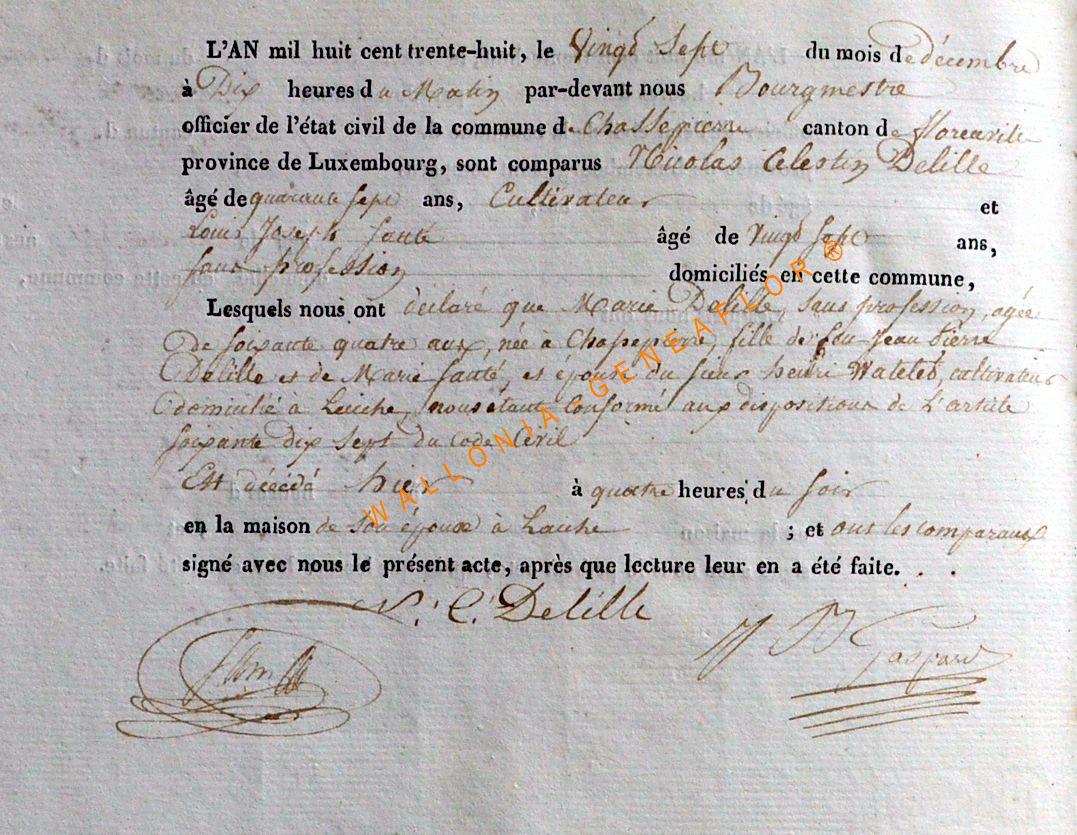 L'AN mil huit cent trente-huit, le Vingt Sept du mois de décembre
à Dix heures du Matin par-devant nous Bourgmestre
officier de l'état civil de la commune de Chassepierre canton de florenville
province de Luxembourg, sont comparus Nicolas Celestin Delille
âgé de quarante sept ans, Cultivateur et
Louis Joseph Santé âgé de Vingt sept ans,
sans profession domiciliés en cette commune,
Lesquels nous ont déclaré que Marie Delille, sans profession, agée
De soixante quatre ans, née à Chassepierre, fille de feu Jean Pierre
Delille et de Marie Santé, et épouse du sieur henri Watelet, cultivateur
domicilié à Laiche, nous étant Conformé aux dispositions de L'article
soixante dix sept du Code Civil
Est décédé hier à quatre heures du soir
en la maison de son époux à Laiche ; et ont les comparants
signé avec nous le présent acte, après que lecture leur en a été faite. . .
N. C. Delille
Gaspard
WALLONIA-GENEAFLOR ®